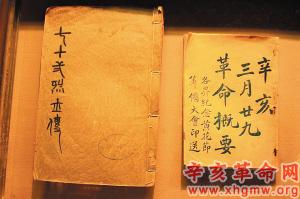 七十弐烈士傳
辛亥
三月廿九
革命概要
各界紀念黃花節
籌備大會印送
辛亥革命网
www.xhgmw.org